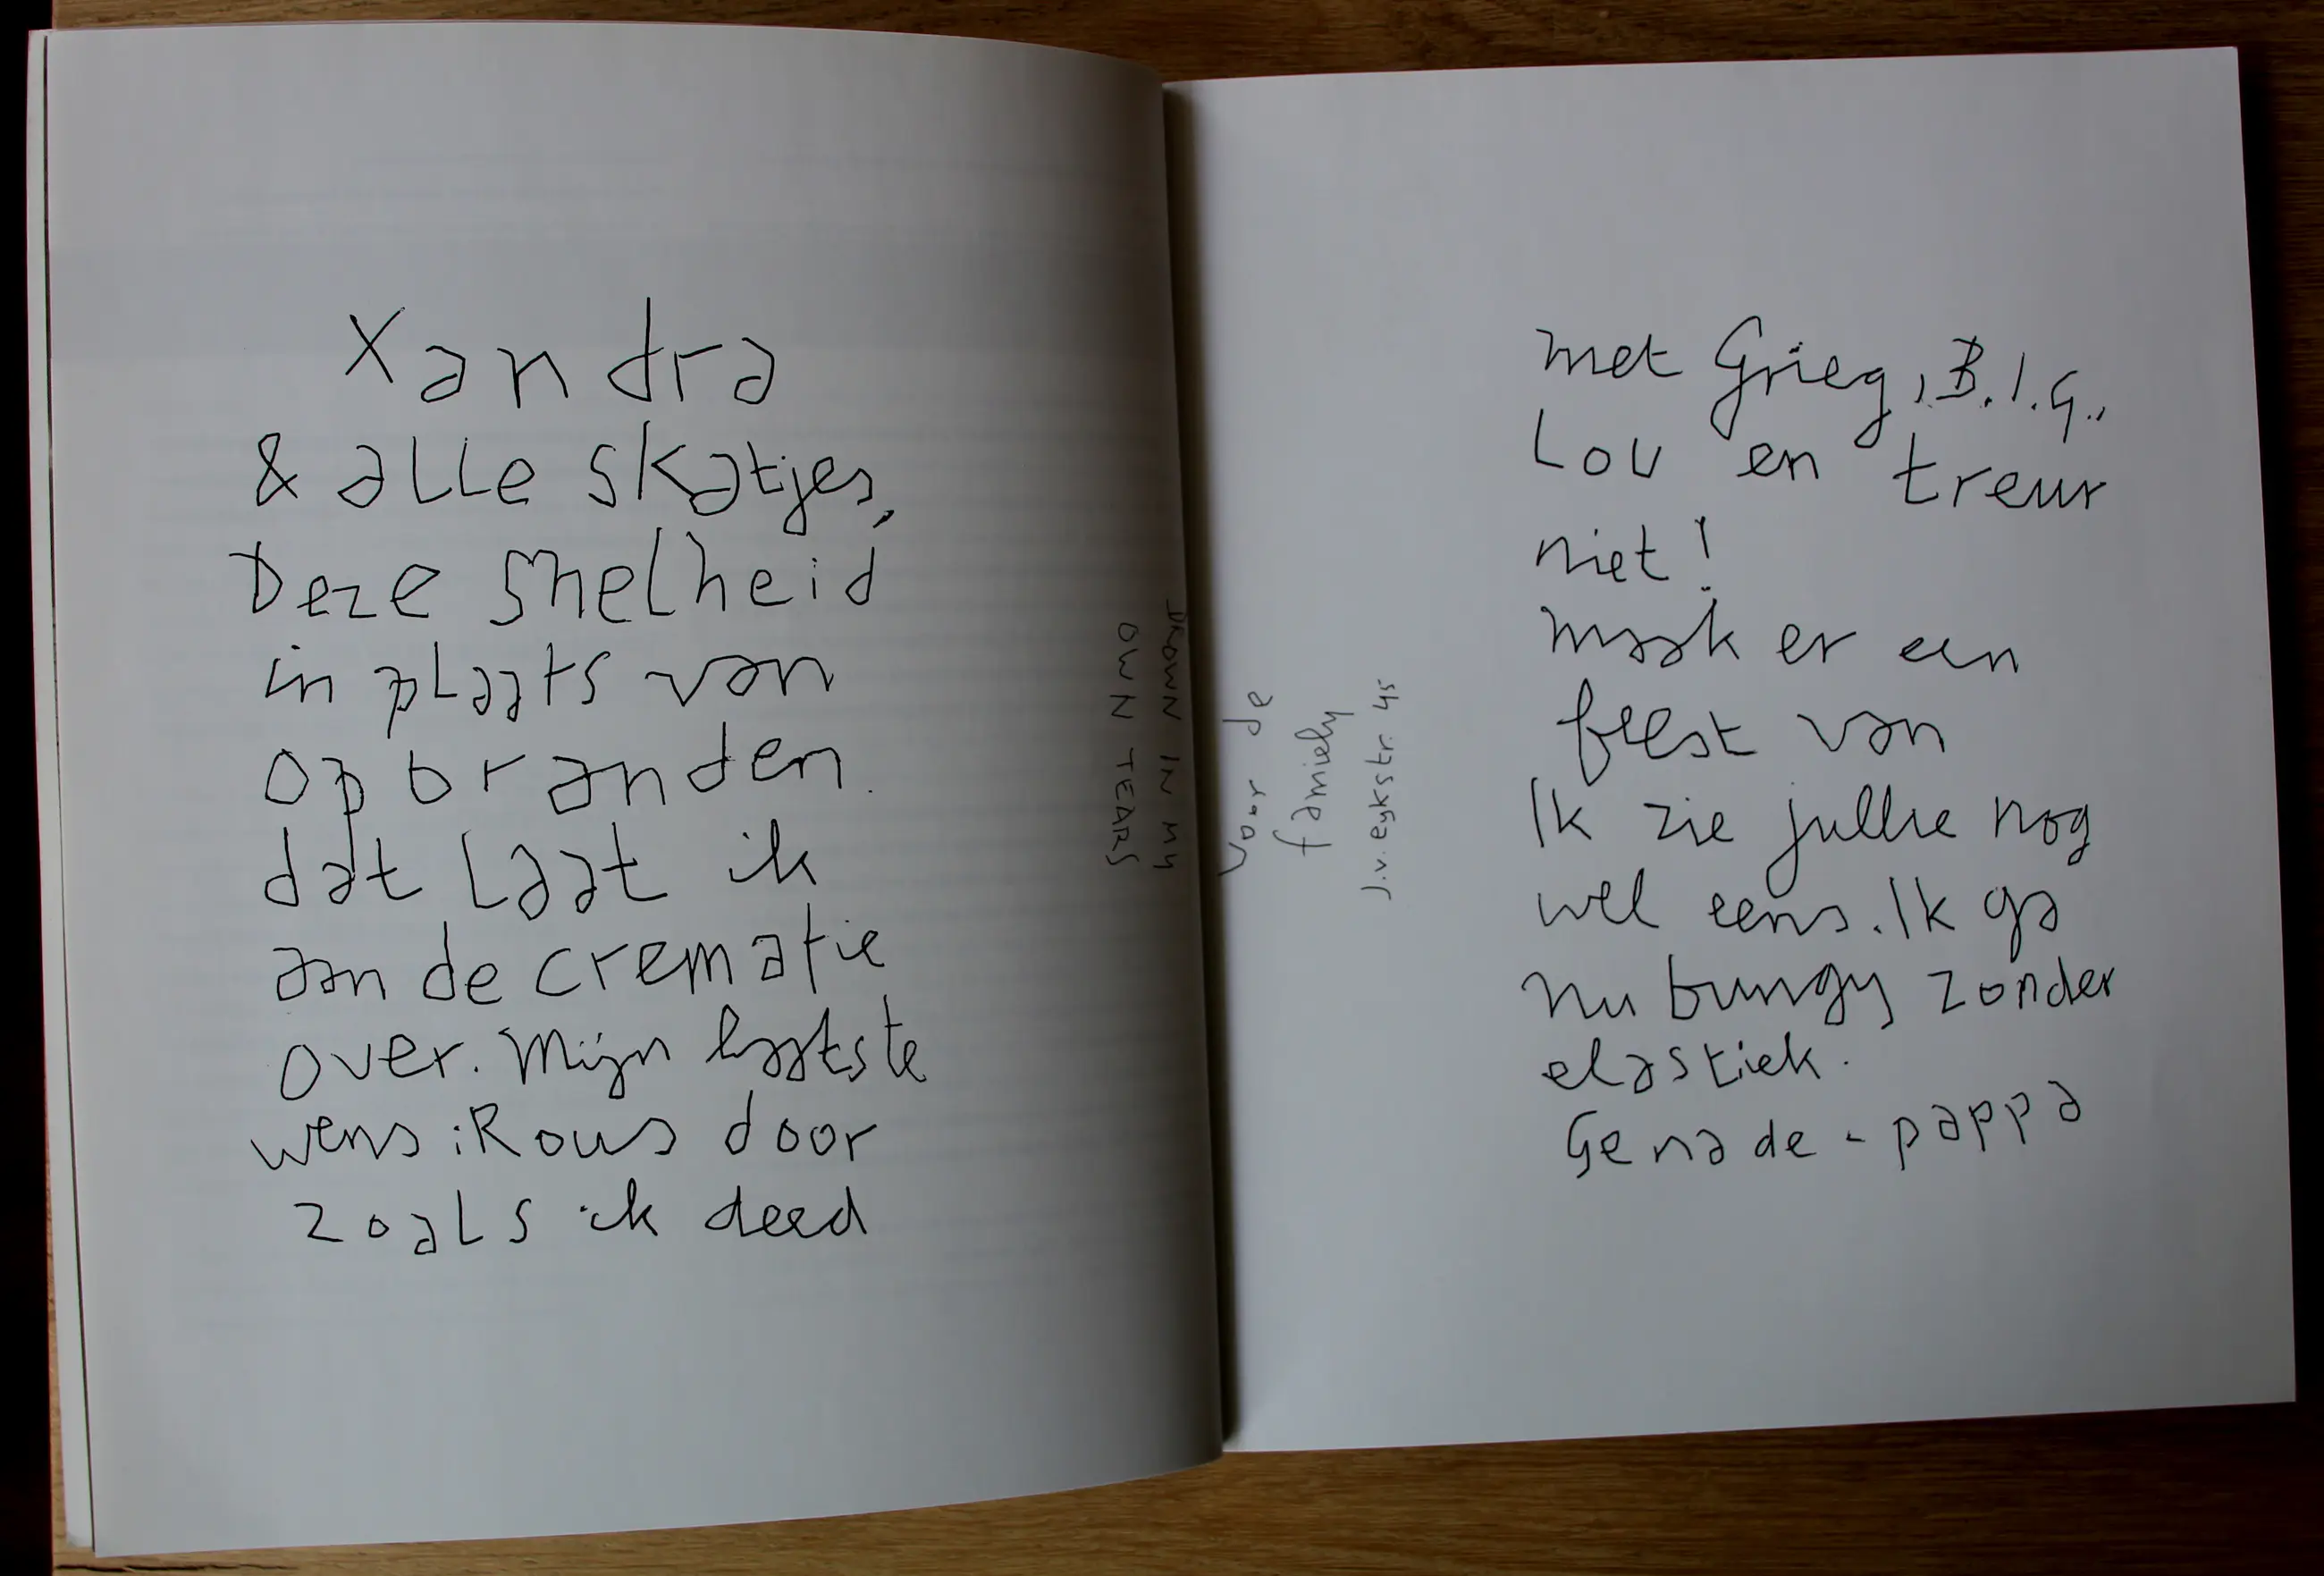 Xandra
& alle skatjes,
Deze snelheid
in plaats van
opbranden.
dat laat ik
aan de crematie
over. Mijn laatste
wens: Rouw door
zoals ik deed
DROWN IN MY
OWN TEARS
Voor de
famiely
J.v. eykstr. 45
met Grieg, B.I.G.,
Lou en treur
niet!
maak er een
feest van
Ik zie jullie nog
wel eens. Ik ga
nu bungy zonder
elastiek.
Genade - pappa